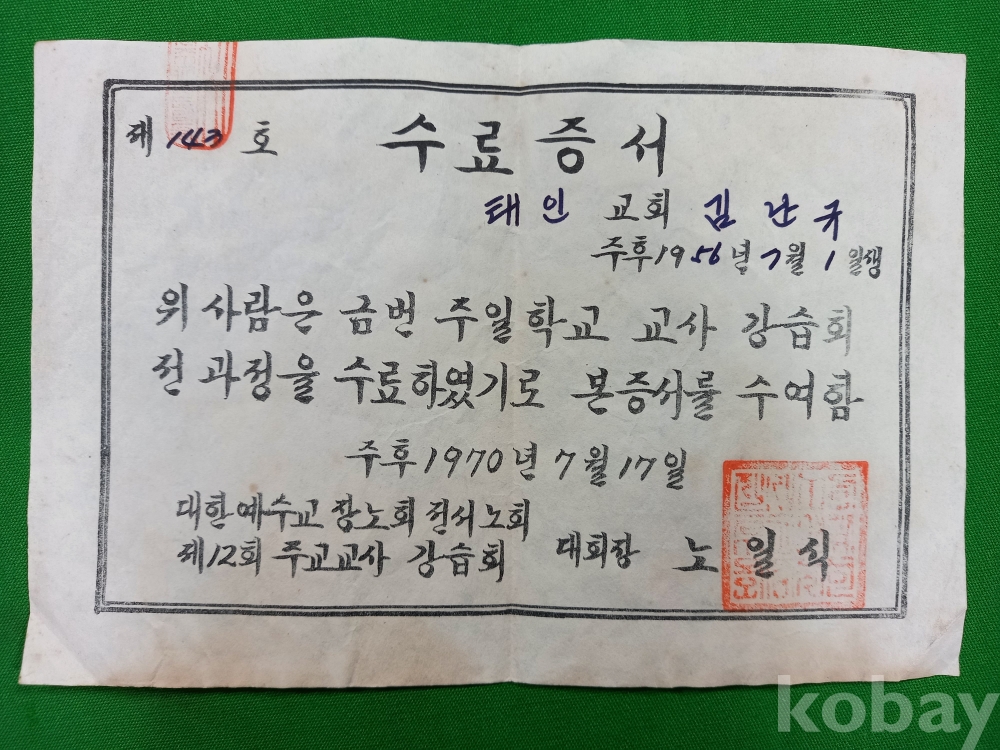 제 143 호 수료증서
태인 교회 김난규
주후 1956년 7월 1일생
위 사람은 금번 주일학교 교사 강습회
전 과정을 수료하였기로 본증서를 수여함
주후 1970년 7월 17일
대한예수교 장노회 전서노회
제12회 주교교사 강습회 대회장 노일식
kobay